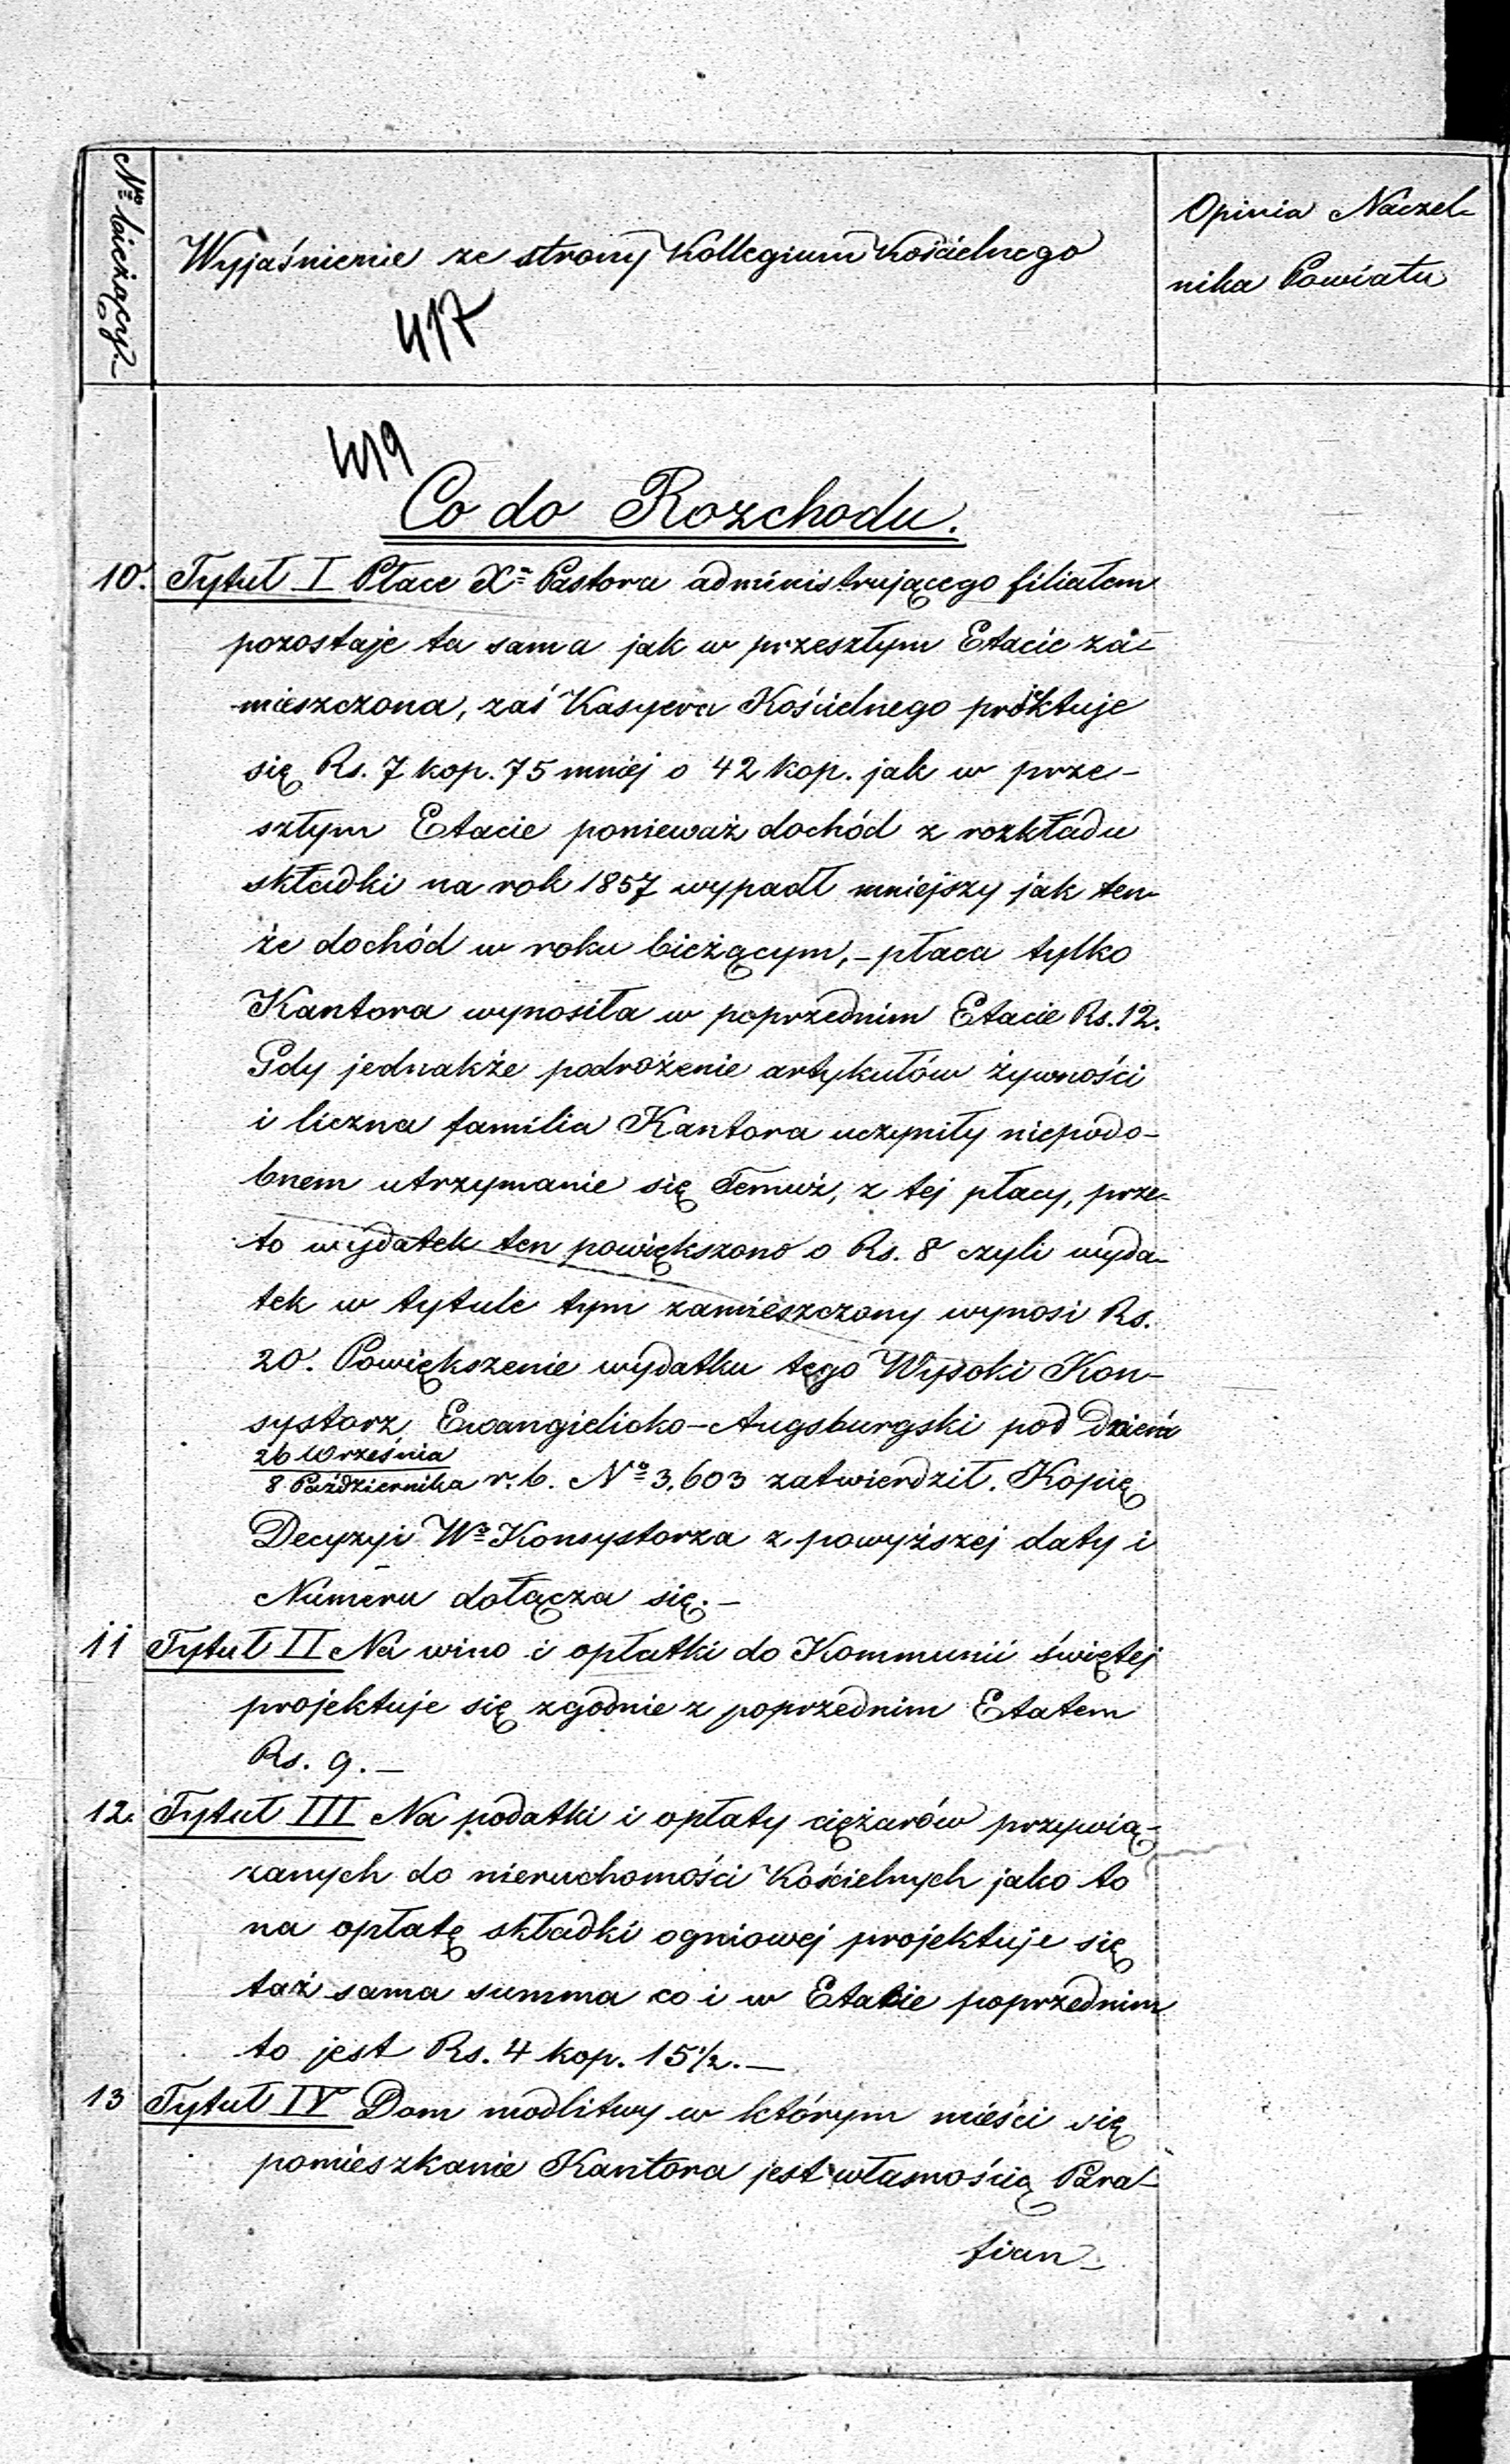 Nro bieżący.
Wyjaśnienie ze strony Kollegium Kościelnego
Opinia Naczel-
nika Powiatu
417
419
Co do Rozchodu.
10. Tytuł I Płace Xa Pastora administrującego filiałem
pozostaje ta sama jak w przeszłym Etacie za-
mieszczona, zaś Kasyera Kościelnego proiktuje
się Rs. 7 kop. 75 mniej o 42 kop. jak w prze-
szłym Etacie ponieważ dochód z rozkładu
składki na rok 1857 wypadł mniejszy jak ten-
że dochód w roku bieżącym,- płaca tylko
Kantora wynosiła w poprzednim Etacie Rs. 12.
Gdy jednakże podrożenie artykułów żywności
i liczna familia Kantora uczyniły niepodo-
bnem utrzymanie się Temuż, z tej płacy, prze-
to wydatek ten powiększono o Rs. 8 czyli wyda-
tek w tytule tym zamieszczony wynosi Rs.
20. Powiększenie wydatku tego Wysoki Kon-
systorz Ewangielicko-Augsburgski pod Dniem
26 Września
8 Października r. b. No 3,603 zatwierdził. Kopię
Decyzyi Wo Konsystorza z powyższej daty i
Numeru dołącza się.-
11 Tytuł II Na wino i opłatki do Kommunii świętej
projektuje się zgodnie z poprzednim Etatem
Rs. 9.-
12. Tytuł III Na podatki i opłaty ciężarów przywią-
zanych do nieruchomości Kościelnych jako to
na opłatę składki ogniowej projektuje się
taż sama summa co i w Etacie poprzednim
to jest Rs. 4 kop. 15½.-
13 Tytuł IV Dom modlitwy w którym mieści się
pomieszkanie Kantora jest własnością Para-
fian-